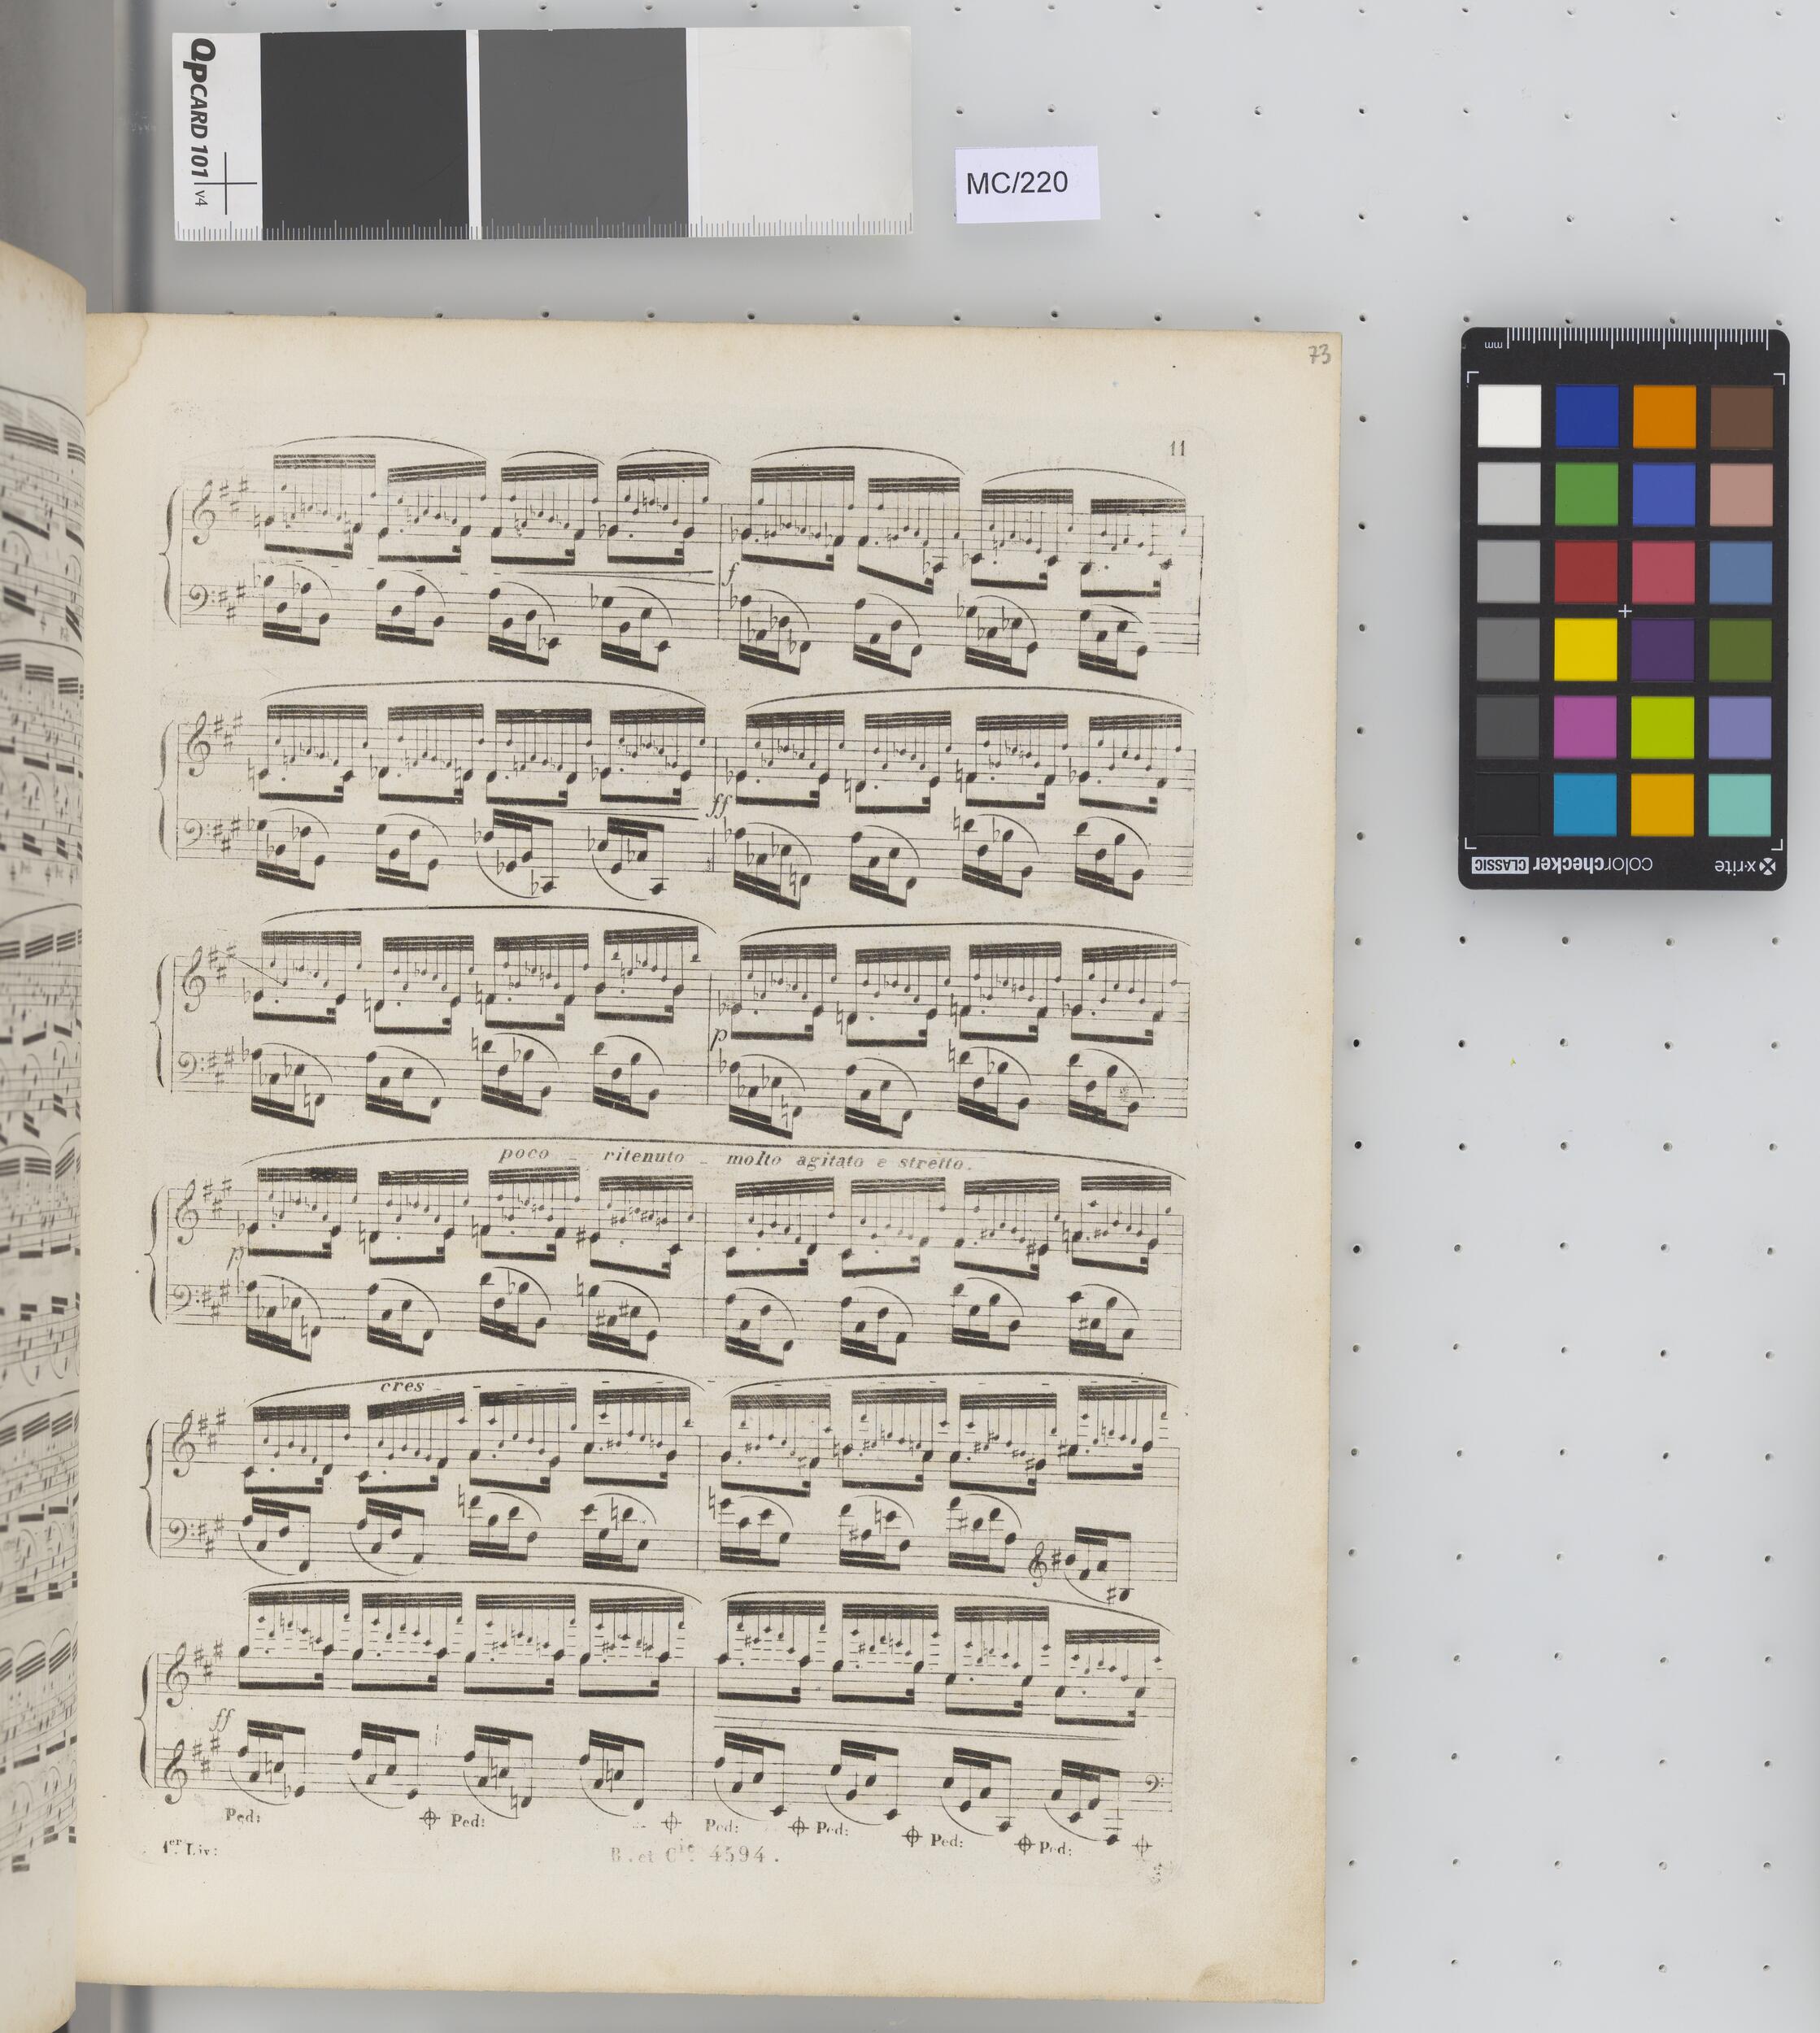 QPCARD 101 v4
MC/220
73
mm
11
f
ff
p
poco - ritenuto - molto agitato e stretto.
p
cres - - -
ff
Ped: Ped: Ped: Ped: Ped: Ped:
1er. Liv:
B. et Cie. 4594.
x-rite colorchecker CLASSIC